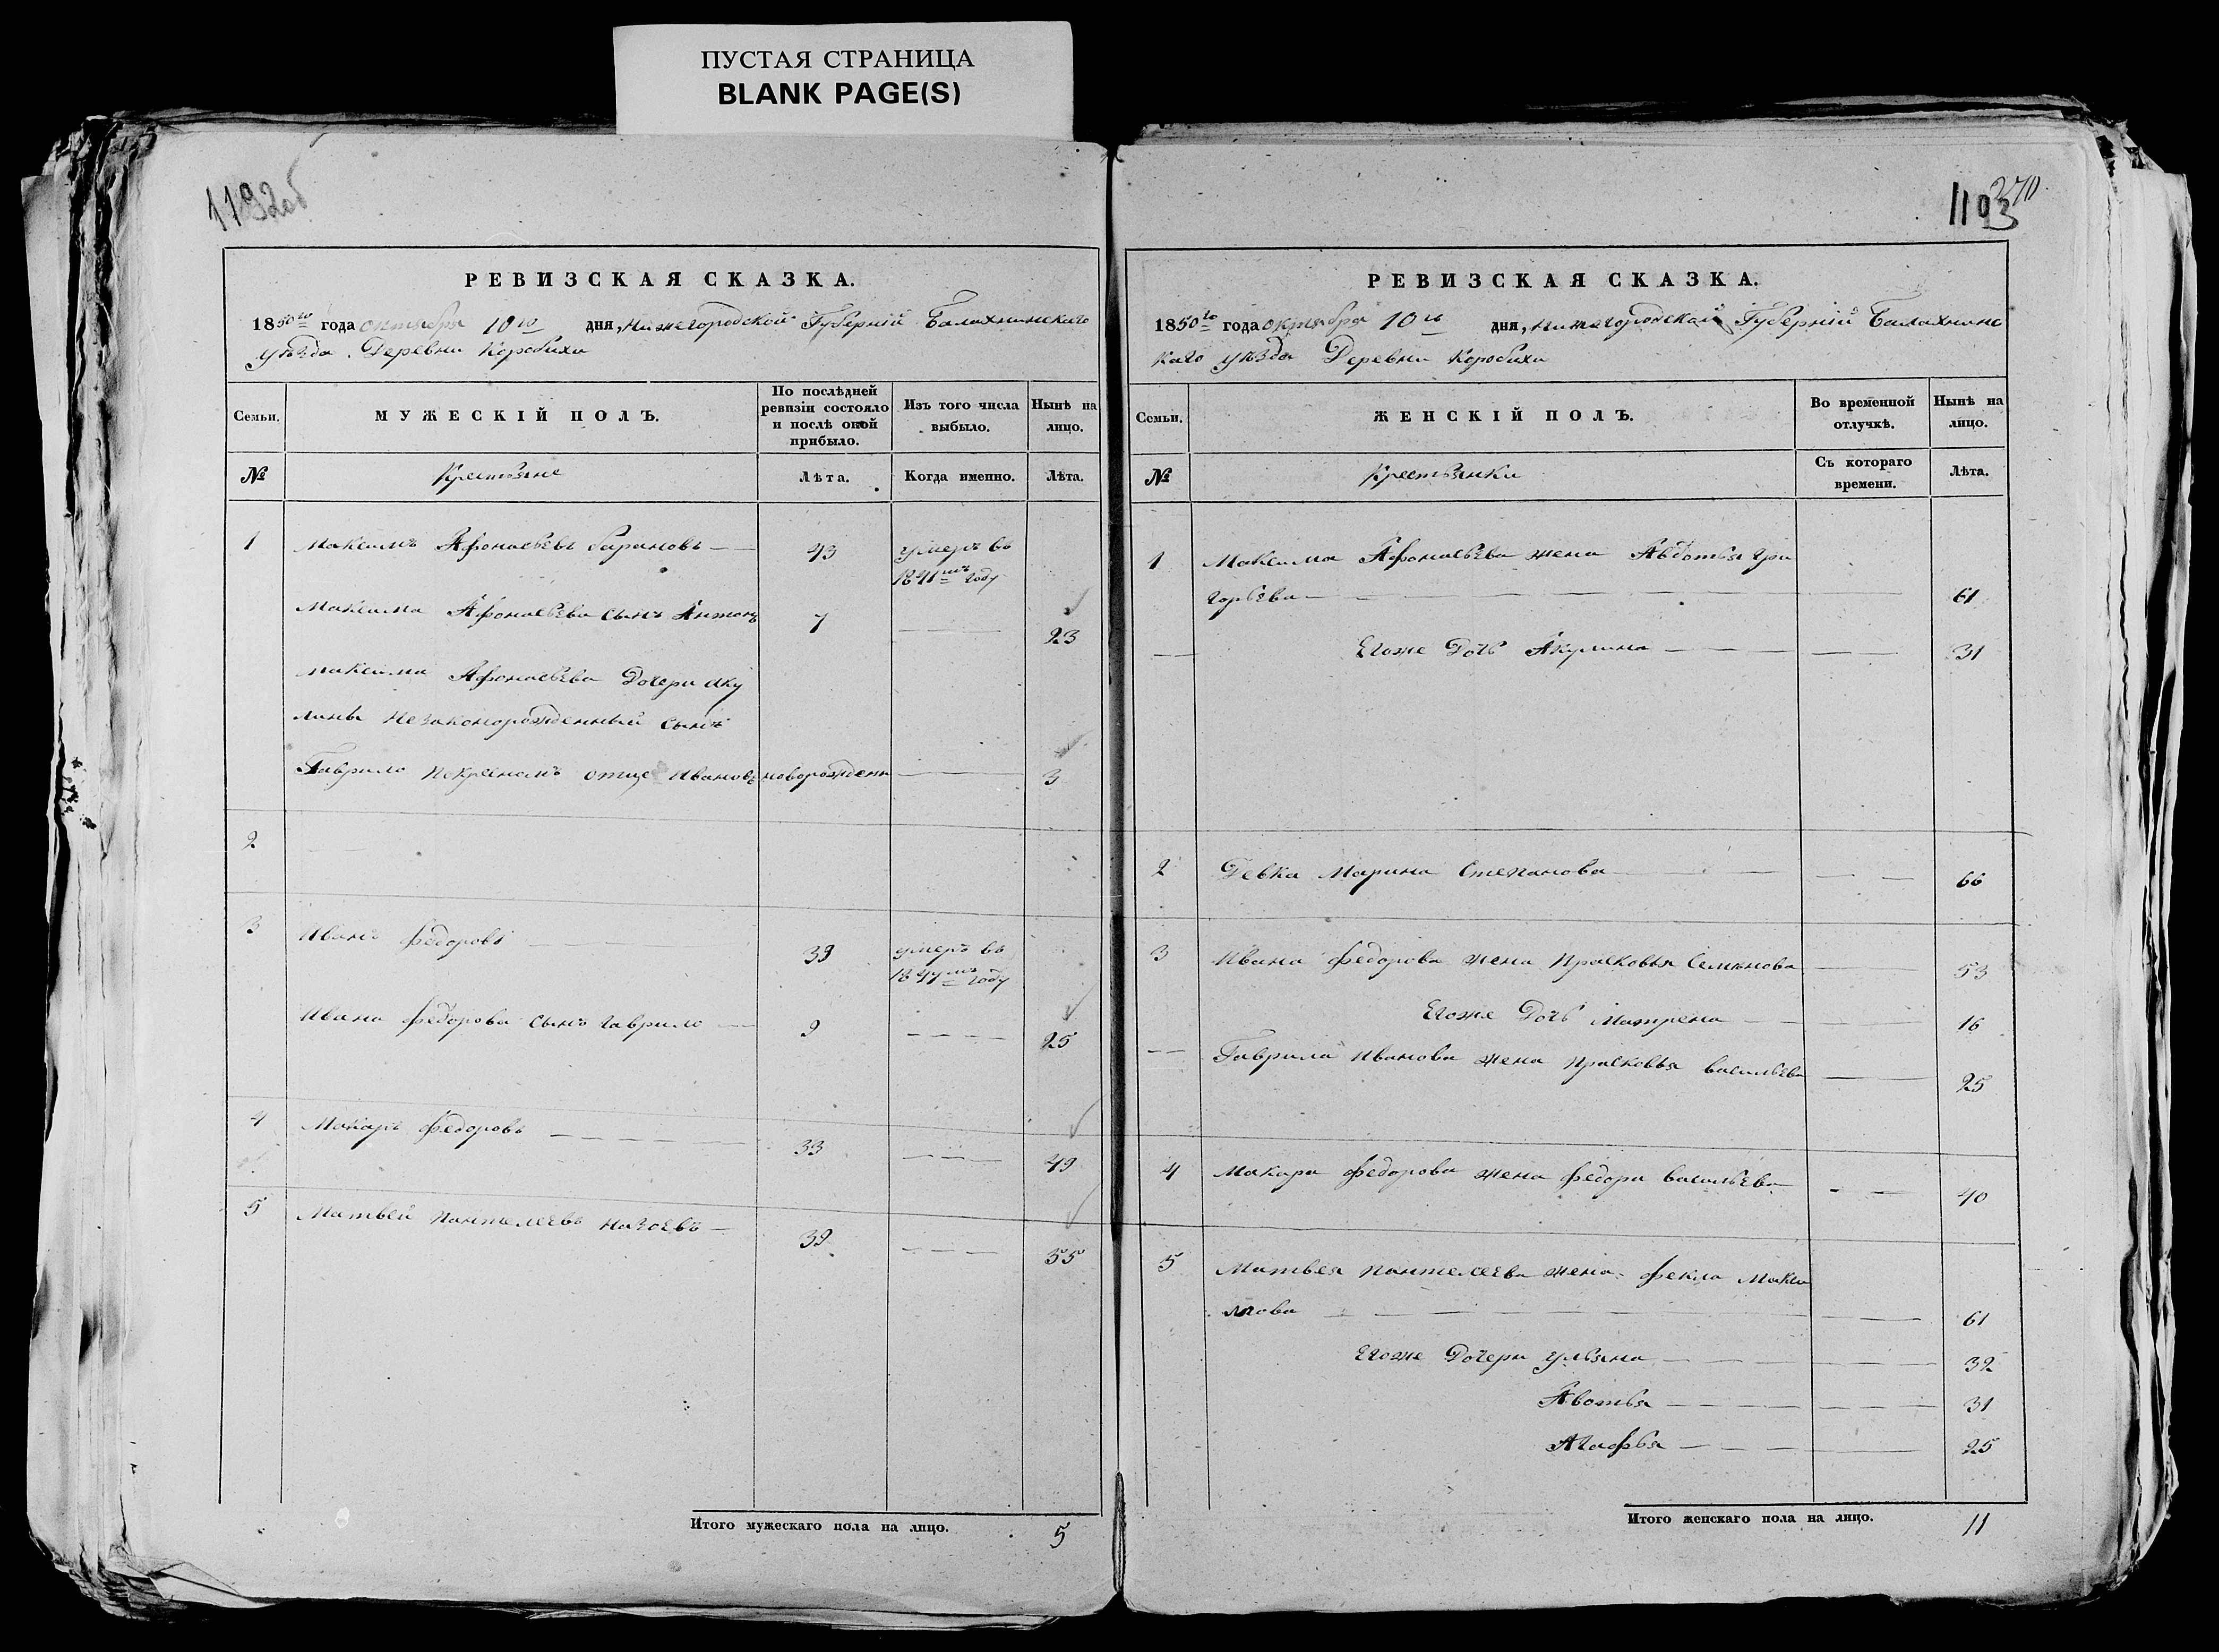 ПУСТАЯ СТРАНИЦА
BLANK PAGE(S)
1192об
РЕВИЗСКАЯ СКАЗКА.
1850го года октября 10го дня, Нижегородской Губерній Балахнинскаго
уѣзда Деревни Коробихи
Семьи.
МУЖЕСКІЙ ПОЛЪ.
По послѣдней ревизіи состояло и послѣ оной прибыло.
Изъ того числа выбыло.
Нынѣ на лицо.
№
Крестьяне
Лѣта.
Когда именно.
Лѣта.
1 Максимъ Афонасьевъ Барановъ 43 умеръ въ
1841мъ году
Максима Афонасьева сынъ Антонъ 7 23
Максима Афонасьева Дочери аку
лины незаконорожденный сынъ
Гаврило покресномъ отце Ивановъ новорожден 3
2
3 Иванъ федоровъ 39 умеръ въ
1847мъ году
Ивана федорова сынъ гаврило 9 25
4 Макаръ федоровъ 33 49
5 Матвей пантелеевъ 39 55
Итого мужескаго пола на лицо. 5
270
1193
РЕВИЗСКАЯ СКАЗКА.
1850го года октября 10го дня, Нижегородской Губерній Балахнинс
каго уѣзда Деревни Коробихи
Семьи.
ЖЕНСКІЙ ПОЛЪ.
Во временной отлучкѣ.
Нынѣ на лицо.
№
Крестьянки
Съ котораго времени.
Лѣта.
1 Максима Афонасьева жена Авдотья гри
горьева 61
Егоже Дочь Акулина 31
2 Девка Марина Степанова 66
3 Ивана федорова жена Прасковья Семенова 53
Егоже Дочь Матрена 16
Гаврила Иванова жена прасковья васильева 25
4 Макара федорова жена федора васильева 40
5 Матвея пантелеева жена фекла Макси
мова 61
Егоже Дочери ульяна 32
Авотья 31
Агафья 25
Итого женскаго пола на лицо. 11